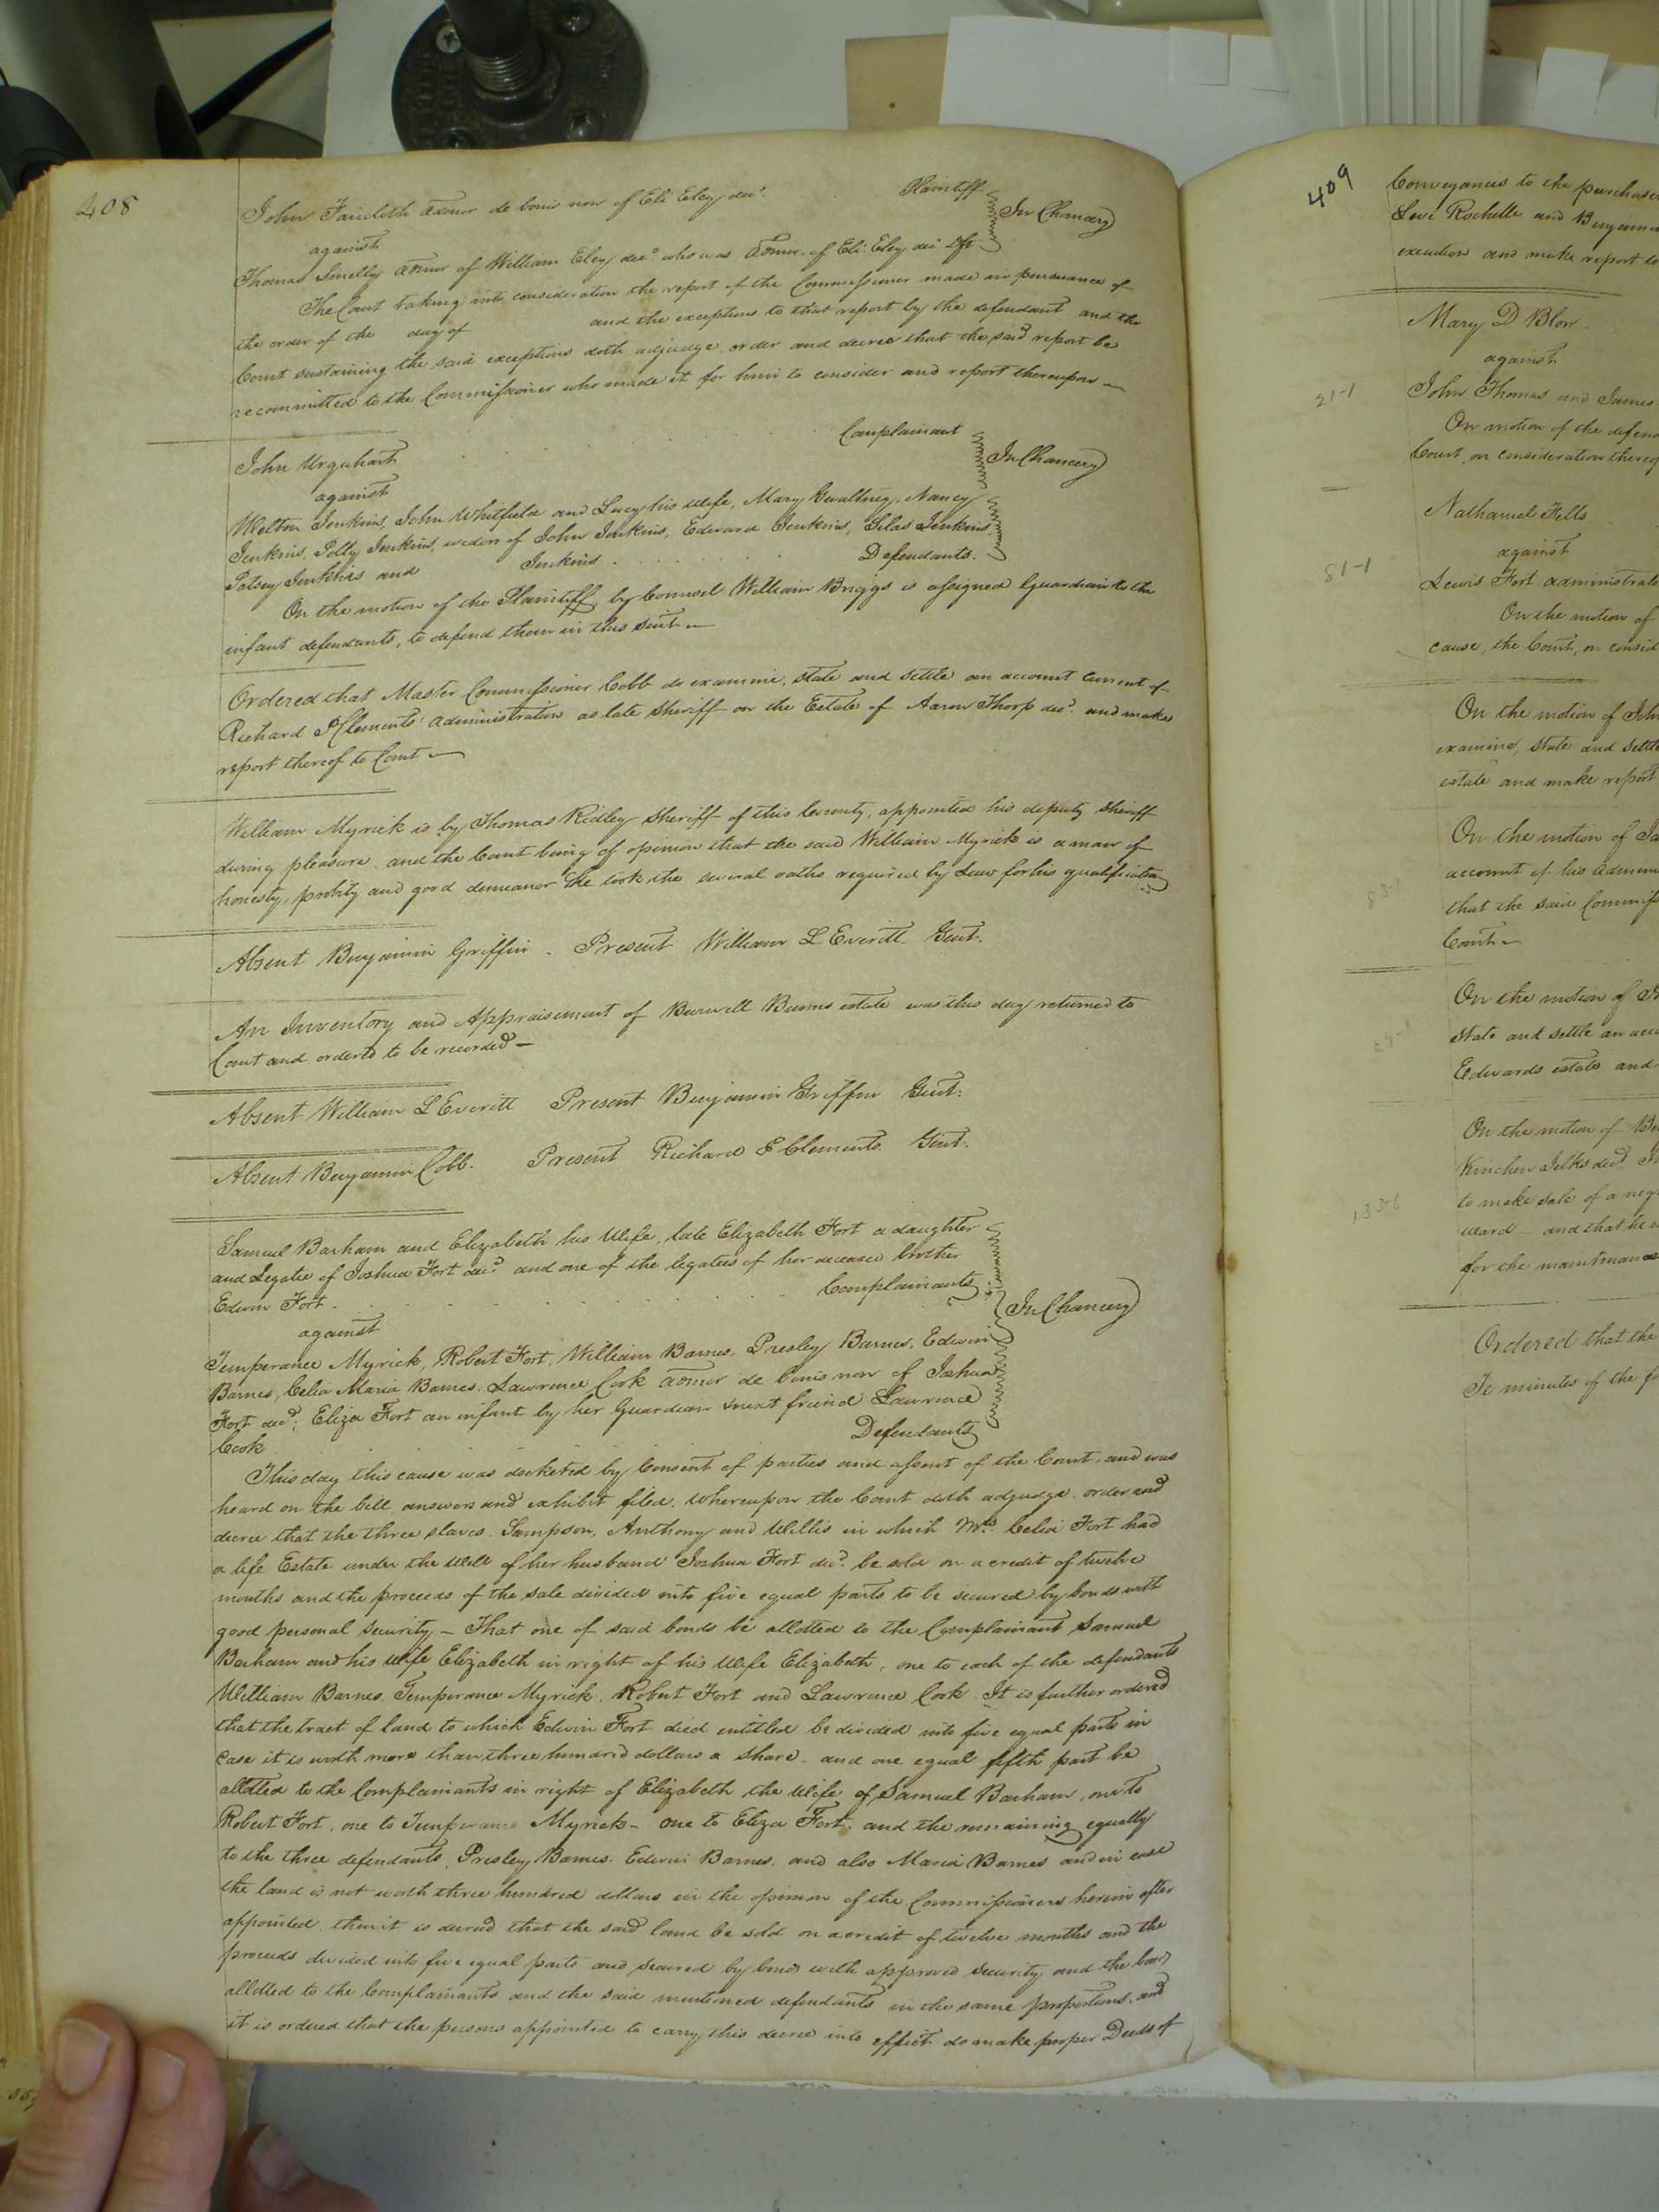 408
John Faircloth admor de bonis non of Eli Eley decd. Plaintiff
against In Chancery
Thomas Smelly admor of William Eley decd. who was admor. of Eli Eley decd Dft
The Court taking into consideration the report of the Commissioner made in pursuance of
the order of the day of and the exceptions to that report by the defendant and the
Court sustaining the said exceptions doth adjudge, order and decree that the said report be
recommitted to the Commissioner who made it for him to consider and report thereupon
John Urquhart Complainant
against In Chancery
Melton Jenkins, John Whitfield and Lucy his wife, Mary Gwaltney, Nancy
Jenkins, Polly Jenkins, widow of John Jenkins, Edward Jenkins, Silas Jenkins
Patsey Jenkins and Jenkins Defendants.
On the motion of the Plaintiff, by Counsel William Briggs is assigned Guardian to the
infant defendants, to defend them in this suit
Ordered that Master Commissioner Cobb do examine, state and settle an account current of
Richard P Clements' administration as late Sheriff on the Estate of Aaron Thorp decd. and make
report thereof to Court
William Myrick is by Thomas Ridley Sheriff of this County, appointed his deputy sheriff
during pleasure. and the Court being of opinion that the said William Myrick is a man of
honesty, probity and good demeanor he took the several oaths required by Law for his qualification
Absent Benjamin Griffin. Present William L Everitt. Gent.
An Inventory and Appraisement of Burwell Bunns estate was this day returned to
Court and ordered to be recorded
Absent William L Everitt Present Benjamin Griffin Gent.
Absent Benjamin Cobb. Present Richard P Clements. Gent.
Samuel Barham and Elizabeth his Wife, late Elizabeth Fort a daughter
and Legatee of Joshua Fort decd. and one of the legatees of her deceased brother
Edwin Fort. Complainants
against In Chancery
Temperance Myrick, Robert Fort, William Barnes, Presley Barnes, Edwin
Barnes, Celia Maria Barnes. Lawrence Cook admor de bonis non of Joshua
Fort decd; Eliza Fort an infant by her Guardian & next friend Lawrence
Cook Defendants
This day this cause was docketed by Consent of parties and assent of the Court, and was
heard on the bill answers and exhibit filed. Whereupon the Court doth adjudge. order and
decree that the three slaves. Sampson, Anthony and Willis in which Mrs. Celia Fort had
a life Estate under the Will of her husband Joshua Fort decd. be sold on a credit of twelve
months and the proceeds of the sale divided into five equal parts to be secured by bonds with
good personal security - That one of said bonds be allotted to the Complainant Samuel
Barham and his wife Elizabeth in right of his Wife Elizabeth, one to each of the defendants
William Barnes. Temperance Myrick. Robert Fort and Lawrence Cook. It is further ordered
that the tract of land to which Edwin Fort died intitled be divided into five equal parts in
case it is worth more than three hundred dollars a share. and one equal fifth part be
allotted to the Complainants in right of Elizabeth the Wife of Samuel Barham, one to
Robert Fort, one to Temperance Myrick - one to Eliza Fort. and the remaining equally
to the three defendants, Presley Barnes. Edwin Barnes. and also Maria Barnes and in case
the land is not worth three hundred dollars in the opinion of the Commissioners herein after
appointed. then it is decreed that the said land be sold on a credit of twelve months and the
proceeds divided into five equal parts and secured by bonds with approved security and the bonds
allotted to the Complainants and the said mentioned defendants in the same proportions. and
it is ordered that the persons appointed to carry this decree into effect do make proper Deeds of
409
Conveyances to the purchaser
Levi Rochelle and Benjamin
execution and make report to
Mary D Blow.
against
21-1
John Thomas and James
On motion of the defen
Court, on consideration thereof
Nathaniel Fells
against
81-1
Lewis Fort administrat
On the motion of
cause, the Court, on consid
On the motion of John
examine, state and settle
estate and make report
On the motion of Ja
account of his admin
that the said Commiss
Court
On the motion of
state and settle an acc
Edwards estate and
On the motion of Be
Kinchen Jelks decd.
133-1
to make sale of a neg
ward and that he
for the maintenance
Ordered that the
Te minutes of the fo